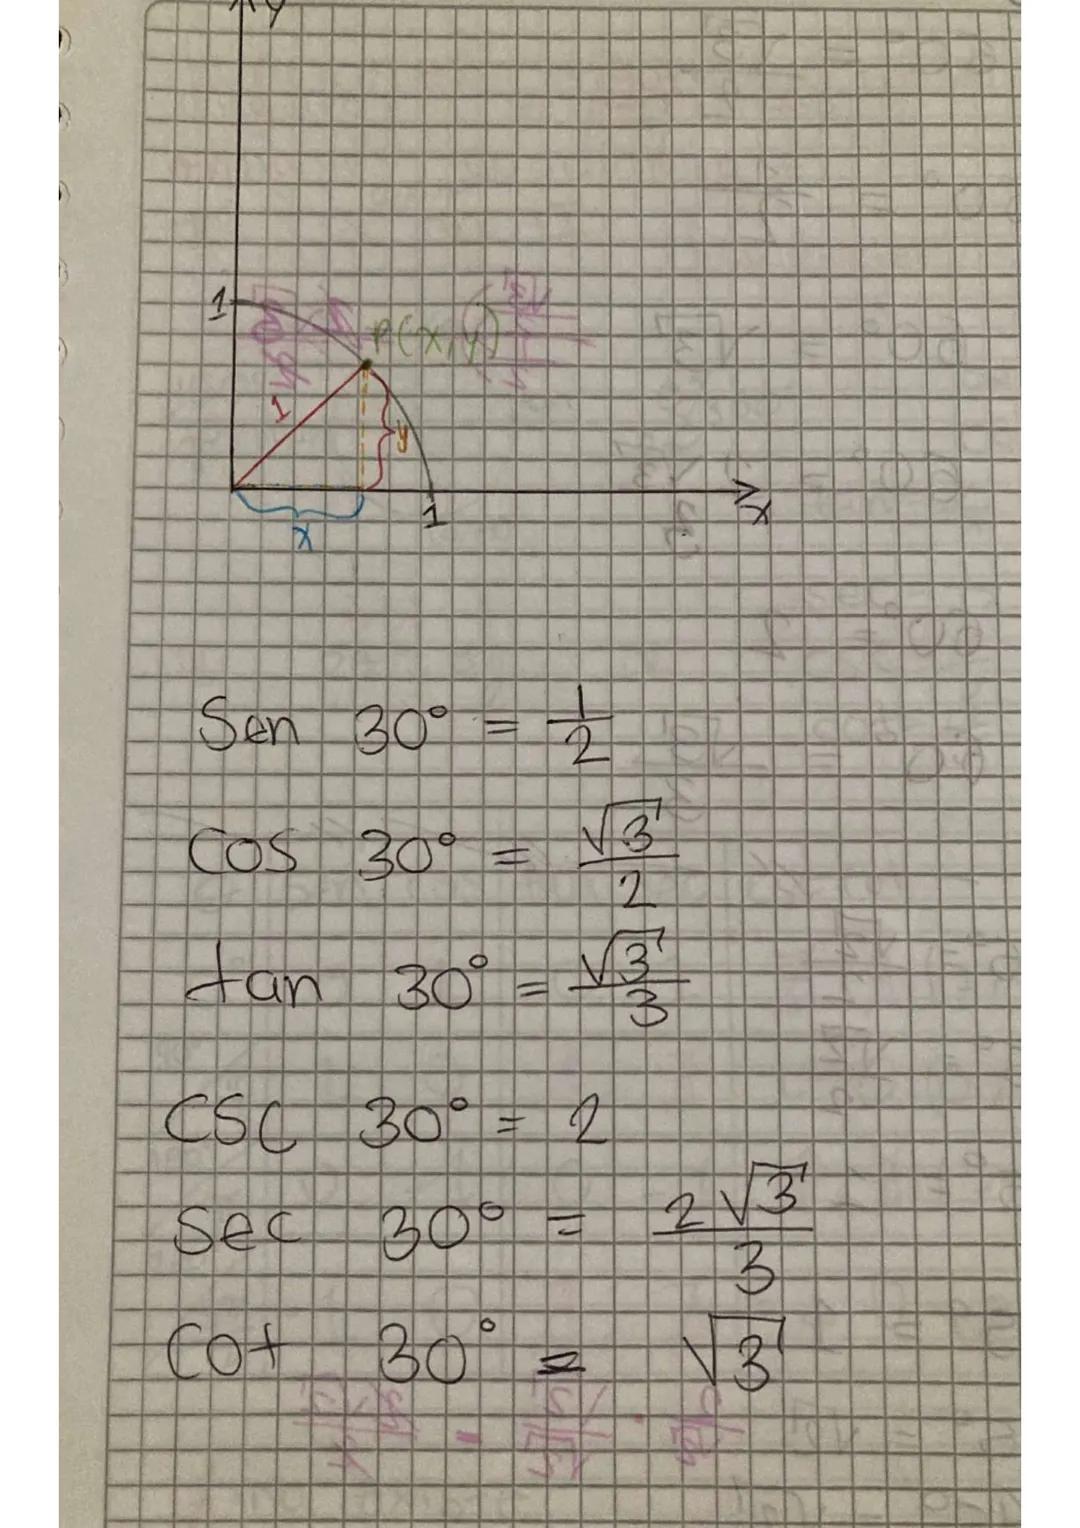 y
1
P(x,y)
1
y
x
1
x
Sen 30° = 1/2
Cos 30° = √3/2
tan 30° = √3/3
CSC 30° = 2
Sec 30° = 2√3/3
Cot 30° = √3